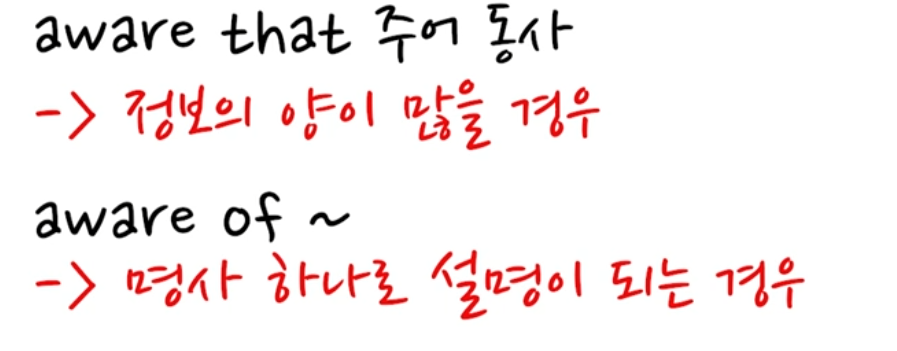 aware that 주어 동사
-> 정보의 양이 많을 경우
aware of ~
-> 명사 하나로 설명이 되는 경우